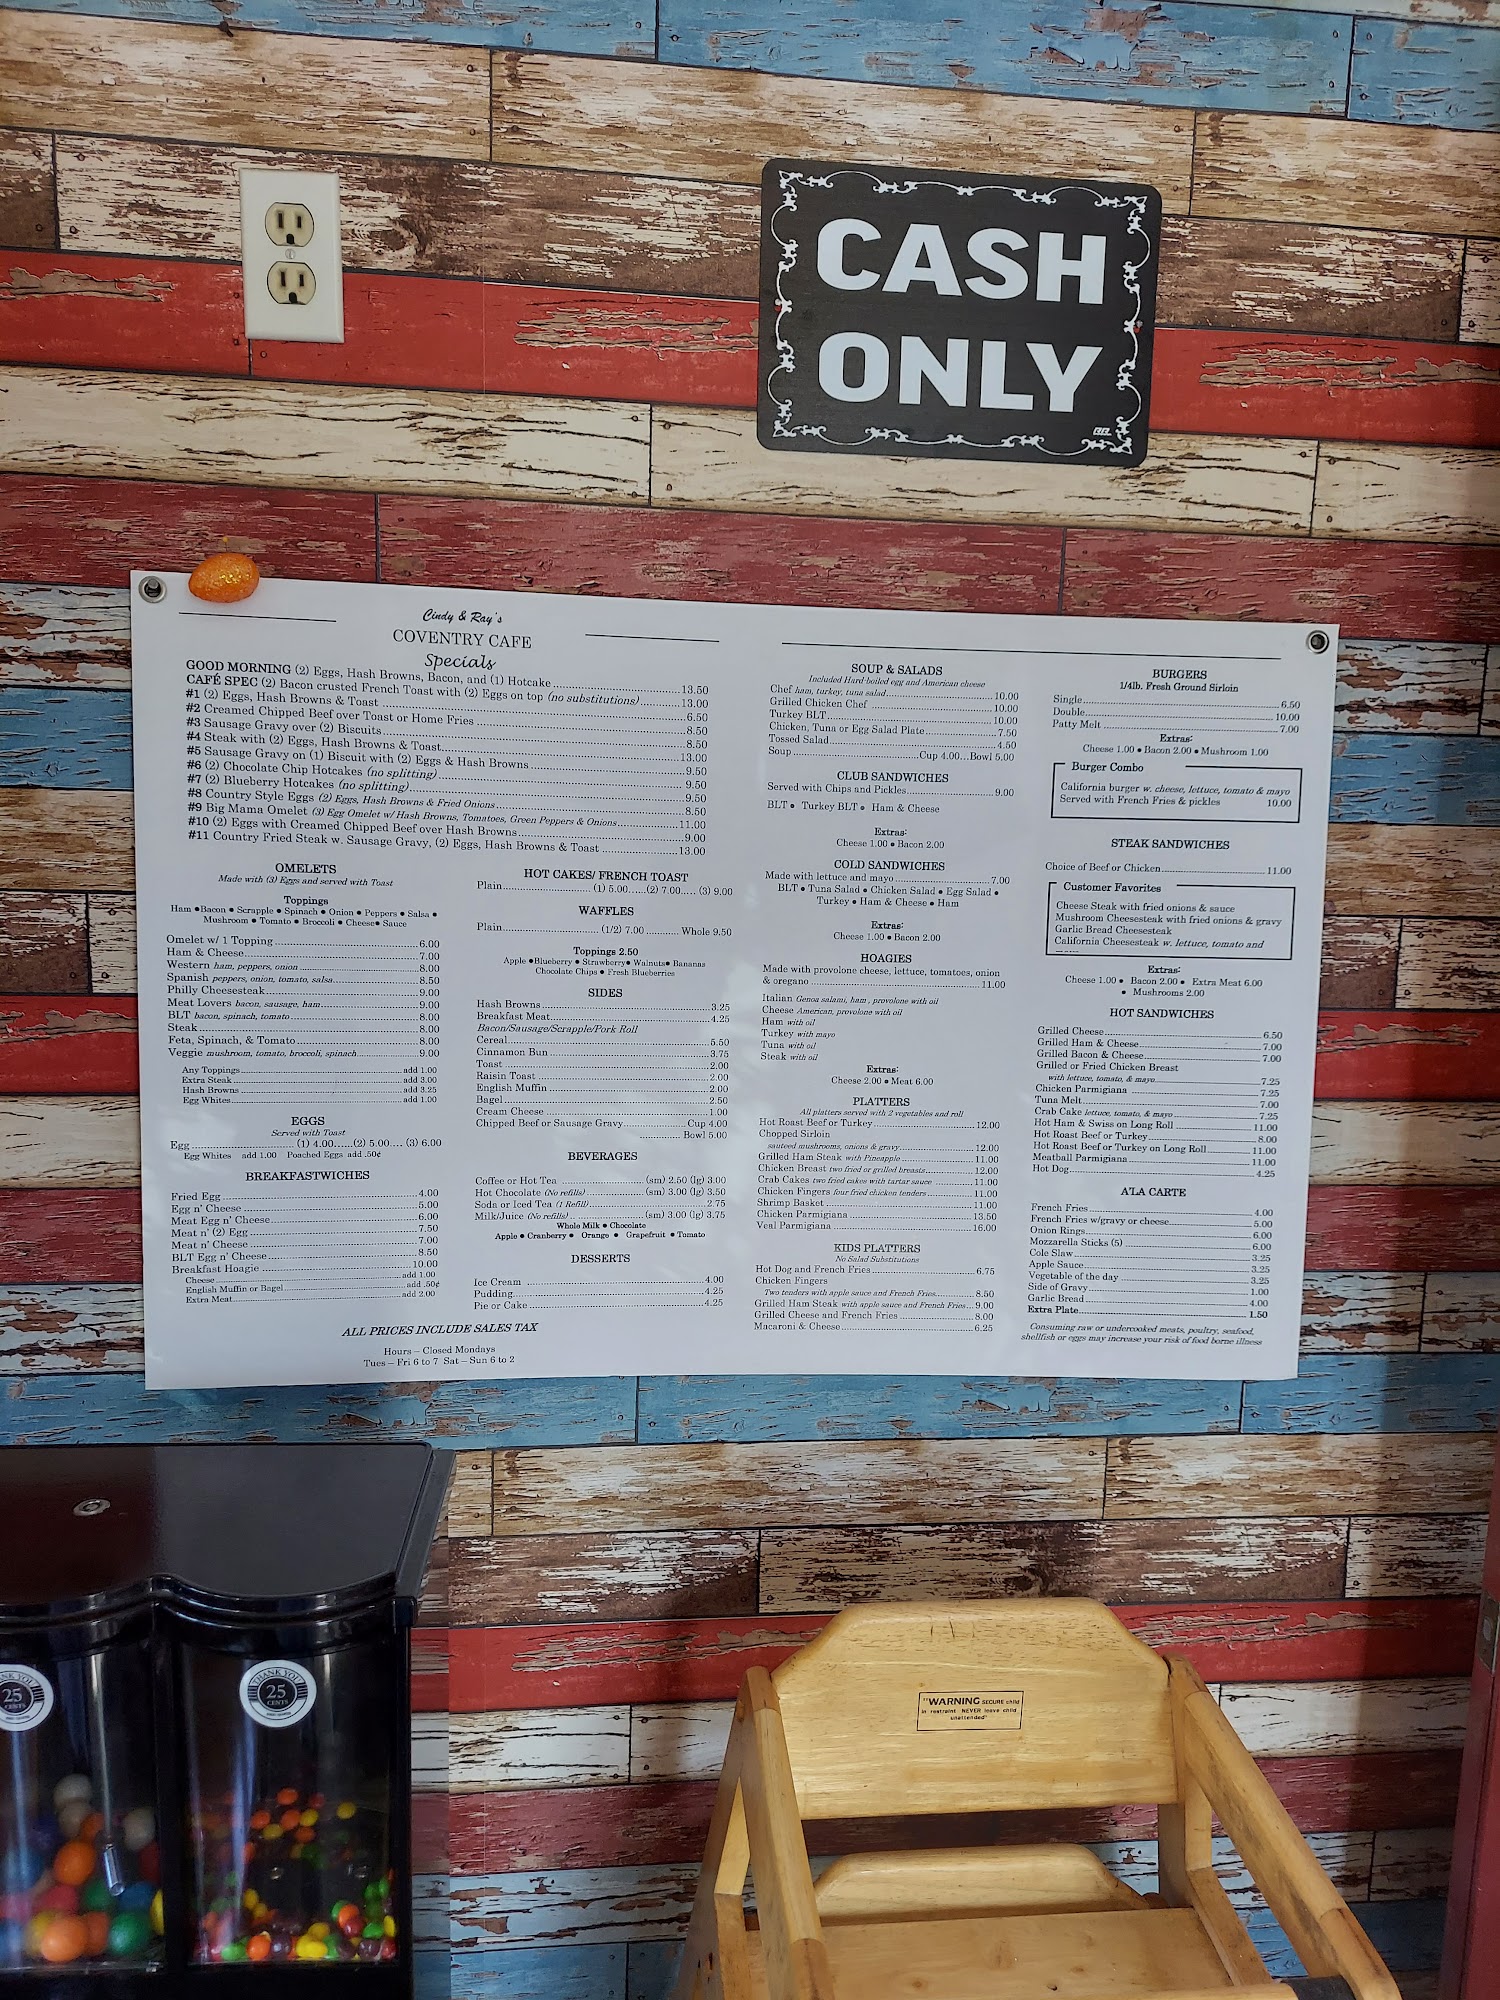 CASH
ONLY
Cindy & Ray's
COVENTRY CAFE
Specials
GOOD MORNING (2) Eggs, Hash Browns, Bacon, and (1) Hotcake 13.50
CAFÉ SPEC (2) Bacon crusted French Toast with (2) Eggs on top (no substitutions) 13.00
#1 (2) Eggs, Hash Browns & Toast 6.50
#2 Creamed Chipped Beef over Toast or Home Fries 8.50
#3 Sausage Gravy over (2) Biscuits 8.50
#4 Steak with (2) Eggs, Hash Browns & Toast 13.00
#5 Sausage Gravy on (1) Biscuit with (2) Eggs & Hash Browns 9.50
#6 (2) Chocolate Chip Hotcakes (no splitting) 9.50
#7 (2) Blueberry Hotcakes (no splitting) 9.50
#8 Country Style Eggs (2) Eggs, Hash Browns & Fried Onions 8.50
#9 Big Mama Omelet (3) Egg Omelet w/ Hash Browns, Tomatoes, Green Peppers & Onions 11.00
#10 (2) Eggs with Creamed Chipped Beef over Hash Browns 9.00
#11 Country Fried Steak w. Sausage Gravy, (2) Eggs, Hash Browns & Toast 13.00
OMELETS
Made with (3) Eggs and served with Toast
Toppings
Ham ● Bacon ● Scrapple ● Spinach ● Onion ● Peppers ● Salsa ●
Mushroom ● Tomato ● Broccoli ● Cheese ● Sauce
Omelet w/ 1 Topping 6.00
Ham & Cheese 7.00
Western ham, peppers, onion 8.00
Spanish peppers, onion, tomato, salsa 8.50
Philly Cheesesteak 9.00
Meat Lovers bacon, sausage, ham 9.00
BLT bacon, spinach, tomato 8.00
Steak 8.00
Feta, Spinach, & Tomato 8.00
Veggie mushroom, tomato, broccoli, spinach 9.00
Any Toppings add 1.00
Extra Steak add 3.00
Hash Browns add 3.25
Egg Whites add 1.00
EGGS
Served with Toast
Egg (1) 4.00 (2) 5.00 (3) 6.00
Egg Whites add 1.00 Poached Eggs add .50¢
BREAKFASTWICHES
Fried Egg 4.00
Egg n' Cheese 5.00
Meat Egg n' Cheese 6.00
Meat n' (2) Egg 7.50
Meat n' Cheese 7.00
BLT Egg n' Cheese 8.50
Breakfast Hoagie 10.00
Cheese add 1.00
English Muffin or Bagel add .50¢
Extra Meat add 2.00
HOT CAKES/ FRENCH TOAST
Plain (1) 5.00 (2) 7.00 (3) 9.00
WAFFLES
Plain (1/2) 7.00 Whole 9.50
Toppings 2.50
Apple ● Blueberry ● Strawberry ● Walnuts ● Bananas
Chocolate Chips ● Fresh Blueberries
SIDES
Hash Browns 3.25
Breakfast Meat 4.25
Bacon/Sausage/Scrapple/Pork Roll
Cereal 5.50
Cinnamon Bun 3.75
Toast 2.00
Raisin Toast 2.00
English Muffin 2.00
Bagel 2.50
Cream Cheese 1.00
Chipped Beef or Sausage Gravy Cup 4.00
Bowl 5.00
BEVERAGES
Coffee or Hot Tea (sm) 2.50 (lg) 3.00
Hot Chocolate (No refills) (sm) 3.00 (lg) 3.50
Soda or Iced Tea (1 Refill) 2.75
Milk/Juice (No refills) (sm) 3.00 (lg) 3.75
Whole Milk ● Chocolate
Apple ● Cranberry ● Orange ● Grapefruit ● Tomato
DESSERTS
Ice Cream 4.00
Pudding 4.25
Pie or Cake 4.25
ALL PRICES INCLUDE SALES TAX
Hours – Closed Mondays
Tues – Fri 6 to 7 Sat – Sun 6 to 2
SOUP & SALADS
Included Hard-boiled egg and American cheese
Chef ham, turkey, tuna salad 10.00
Grilled Chicken Chef 10.00
Turkey BLT 10.00
Chicken, Tuna or Egg Salad Plate 7.50
Tossed Salad 4.50
Soup Cup 4.00...Bowl 5.00
CLUB SANDWICHES
Served with Chips and Pickles 9.00
BLT ● Turkey BLT ● Ham & Cheese
Extras:
Cheese 1.00 ● Bacon 2.00
COLD SANDWICHES
Made with lettuce and mayo 7.00
BLT ● Tuna Salad ● Chicken Salad ● Egg Salad ●
Turkey ● Ham & Cheese ● Ham
Extras:
Cheese 1.00 ● Bacon 2.00
HOAGIES
Made with provolone cheese, lettuce, tomatoes, onion
& oregano 11.00
Italian Genoa salami, ham, provolone with oil
Cheese American, provolone with oil
Ham with oil
Turkey with mayo
Tuna with oil
Steak with oil
Extras:
Cheese 2.00 ● Meat 6.00
PLATTERS
All platters served with 2 vegetables and roll
Hot Roast Beef or Turkey 12.00
Chopped Sirloin
sauteed mushrooms, onions & gravy 12.00
Grilled Ham Steak with Pineapple 11.00
Chicken Breast two fried or grilled breasts 12.00
Crab Cakes two fried cakes with tartar sauce 11.00
Chicken Fingers four fried chicken tenders 11.00
Shrimp Basket 11.00
Chicken Parmigiana 13.50
Veal Parmigiana 16.00
KIDS PLATTERS
No Salad Substitutions
Hot Dog and French Fries 6.75
Chicken Fingers
Two tenders with apple sauce and French Fries 8.50
Grilled Ham Steak with apple sauce and French Fries 9.00
Grilled Cheese and French Fries 8.00
Macaroni & Cheese 6.25
BURGERS
1/4lb. Fresh Ground Sirloin
Single 6.50
Double 10.00
Patty Melt 7.00
Extras:
Cheese 1.00 ● Bacon 2.00 ● Mushroom 1.00
Burger Combo
California burger w. cheese, lettuce, tomato & mayo
Served with French Fries & pickles 10.00
STEAK SANDWICHES
Choice of Beef or Chicken 11.00
Customer Favorites
Cheese Steak with fried onions & sauce
Mushroom Cheesesteak with fried onions & gravy
Garlic Bread Cheesesteak
California Cheesesteak w. lettuce, tomato and
Extras:
Cheese 1.00 ● Bacon 2.00 ● Extra Meat 6.00
● Mushrooms 2.00
HOT SANDWICHES
Grilled Cheese 6.50
Grilled Ham & Cheese 7.00
Grilled Bacon & Cheese 7.00
Grilled or Fried Chicken Breast
with lettuce, tomato, & mayo 7.25
Chicken Parmigiana 7.25
Tuna Melt 7.00
Crab Cake lettuce, tomato, & mayo 7.25
Hot Ham & Swiss on Long Roll 11.00
Hot Roast Beef or Turkey 8.00
Hot Roast Beef or Turkey on Long Roll 11.00
Meatball Parmigiana 11.00
Hot Dog 4.25
A'LA CARTE
French Fries 4.00
French Fries w/gravy or cheese 5.00
Onion Rings 6.00
Mozzarella Sticks (5) 6.00
Cole Slaw 3.25
Apple Sauce 3.25
Vegetable of the day 3.25
Side of Gravy 1.00
Garlic Bread 4.00
Extra Plate 1.50
Consuming raw or undercooked meats, poultry, seafood,
shellfish or eggs may increase your risk of food borne illness
THANK YOU
25
CENTS
25
CENTS
"WARNING SECURE child
in restraint NEVER leave child
unattended"